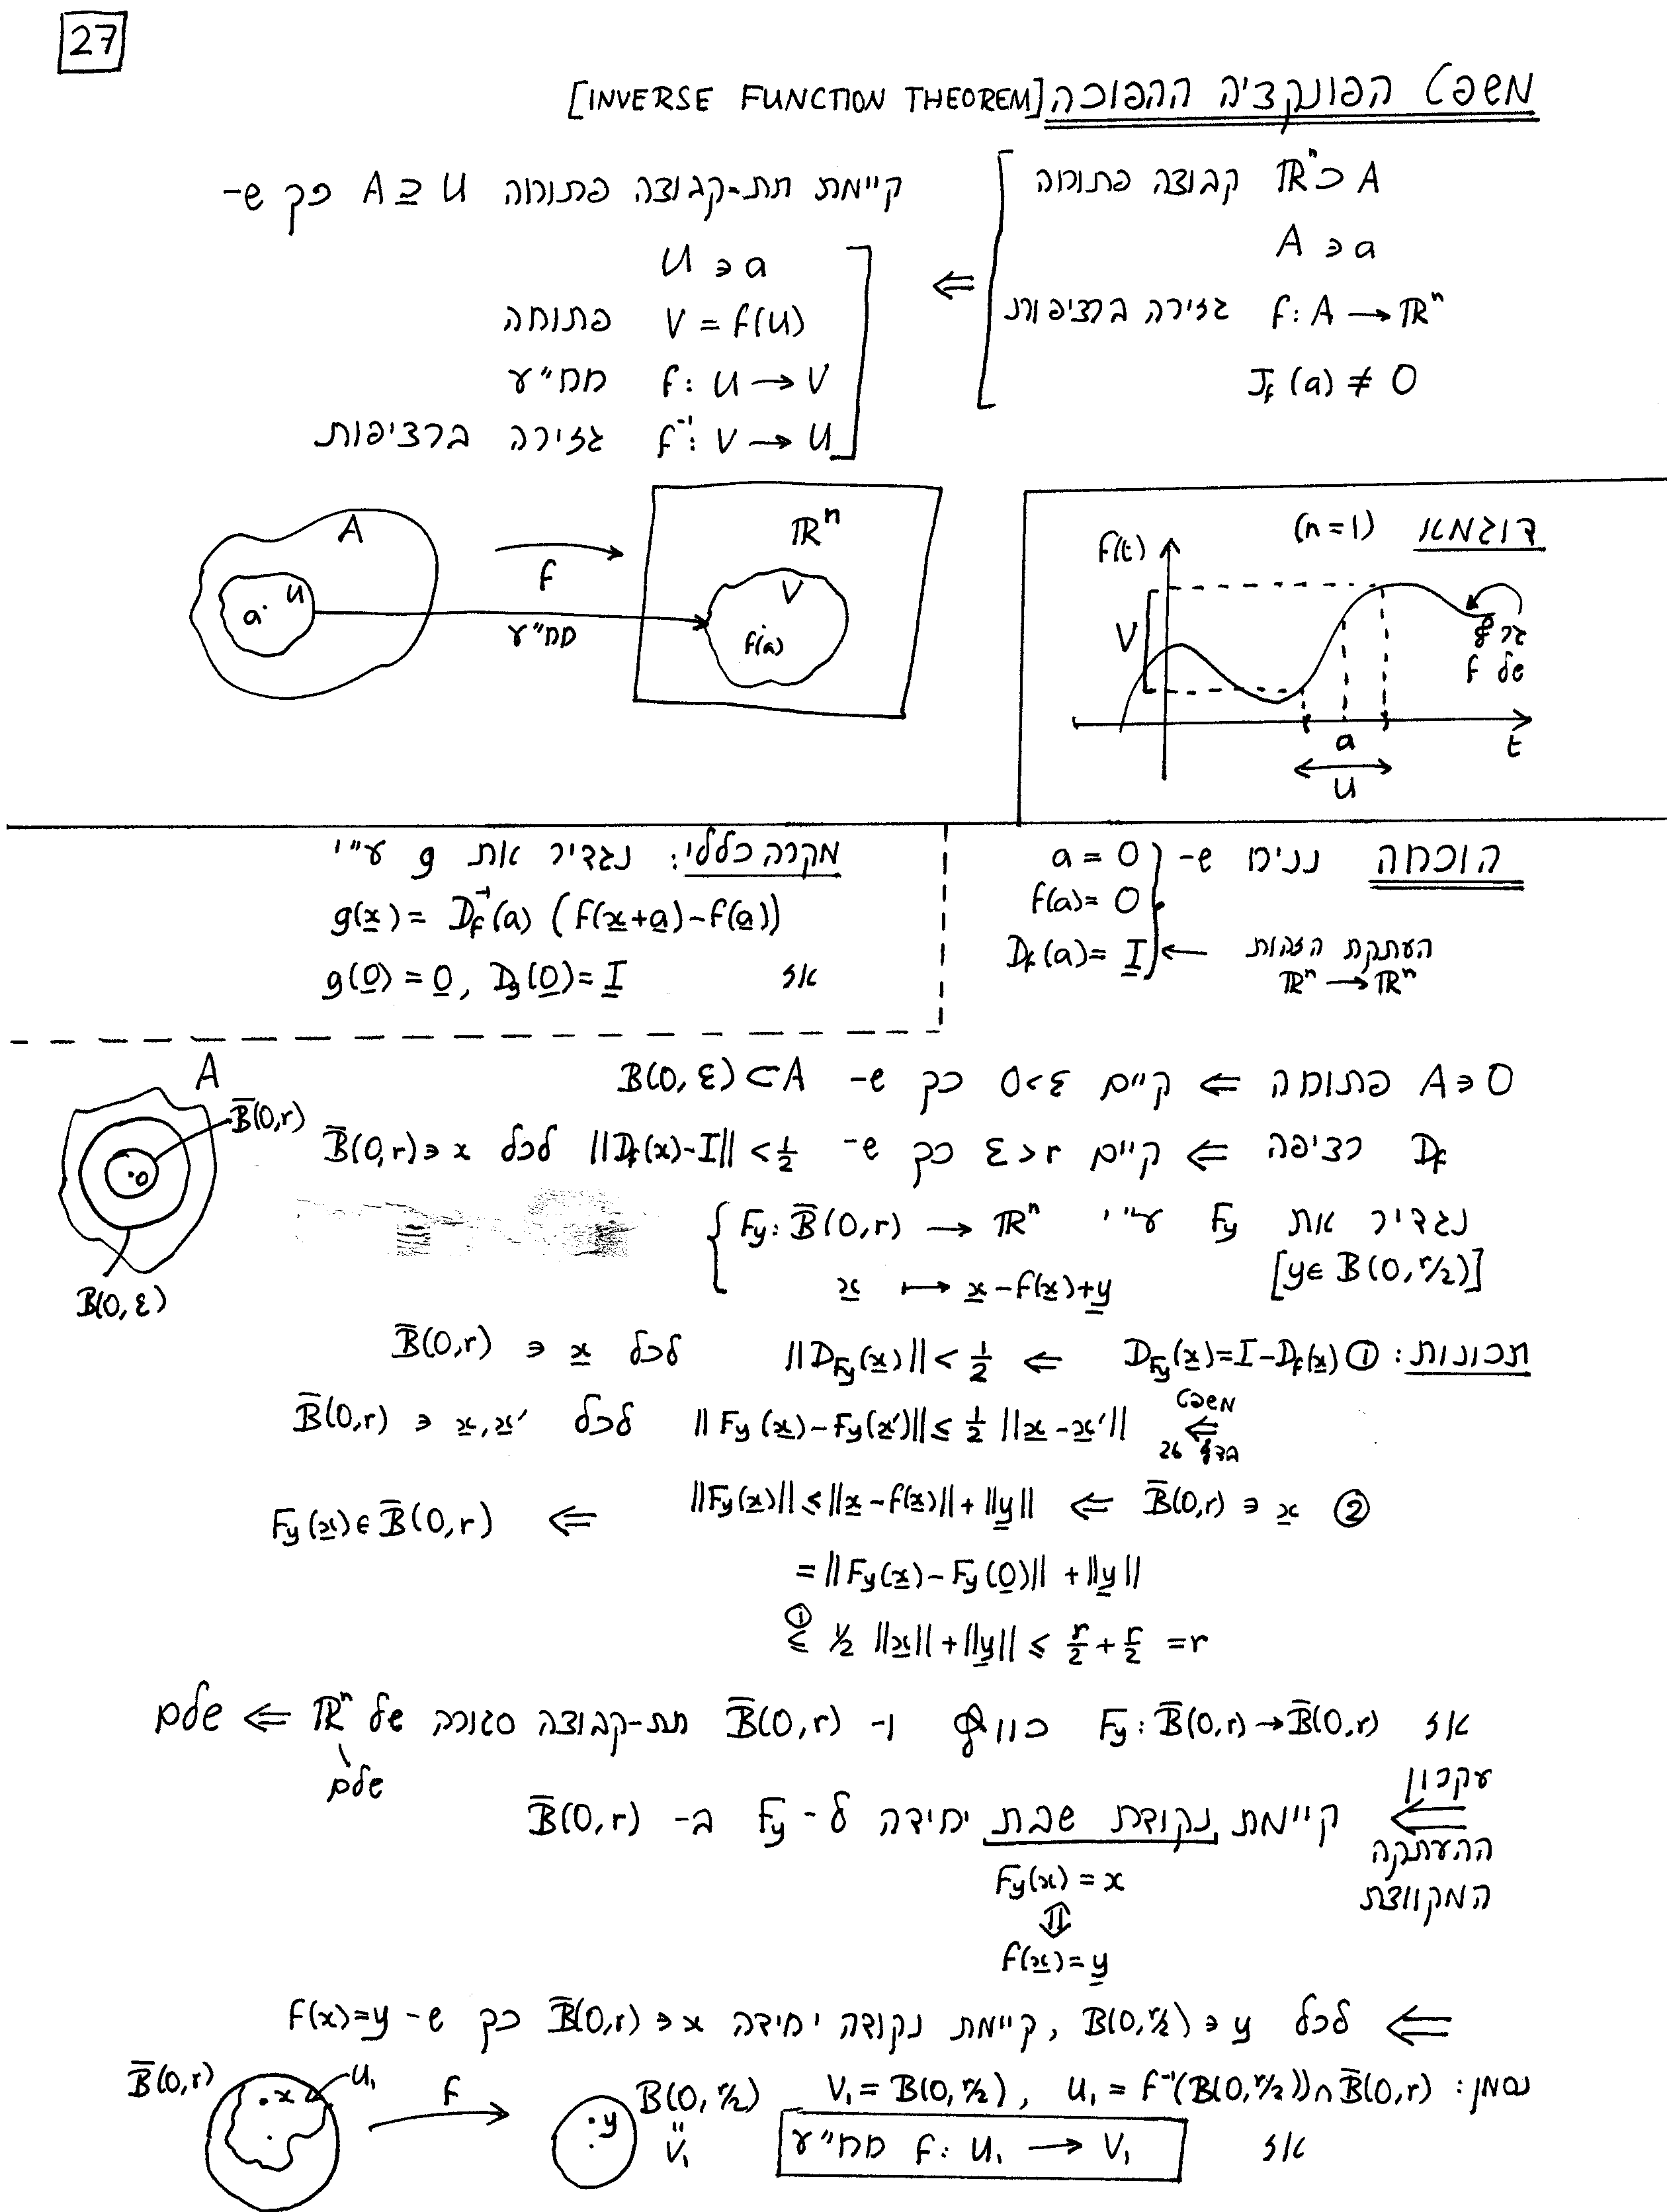 27
משפט הפונקציה ההפוכה [INVERSE FUNCTION THEOREM]
A ⊂ ℝⁿ קבוצה פתוחה
a ∈ A
f: A → ℝⁿ גזירה ברציפות
J_f(a) ≠ 0
⇐
קיימת תת-קבוצה פתוחה A ⊇ U כך ש-
U ∋ a
V = f(U) פתוחה
f: U → V חח"ע
f⁻¹: V → U גזירה ברציפות
A
U
a
f
חח"ע
ℝⁿ
V
f(a)
דוגמא (n=1)
f(t)
V
גרף
של f
a
t
U
הוכחה נניח ש- a = 0
f(a) = 0
D_f(a) = I ← העתקת הזהות
ℝⁿ → ℝⁿ
מקרה כללי: נגדיר את g ע"י
g(x) = D_f⁻¹(a) (f(x+a)-f(a))
אז g(0) = 0, D_g(0) = I
A
B̄(0,r)
0
B(0,ε)
A∋0 פתוחה ⇐ קיים 0<ε כך ש- B(0,ε)⊂A
D_f רציפה ⇐ קיים ε>r כך ש- ||D_f(x)-I|| < 1/2 לכל B̄(0,r)∋x
נגדיר את F_y ע"י F_y: B̄(0,r) → ℝⁿ
[y∈B(0,r/2)] x ↦ x-f(x)+y
תכונות: ① D_{F_y}(x)=I-D_f(x) ⇐ ||D_{F_y}(x)|| < 1/2 לכל B̄(0,r) ∋ x
משפט
⇐ ||F_y(x)-F_y(x')|| ≤ 1/2 ||x-x'|| לכל B̄(0,r) ∋ x,x'
בדף 26
② B̄(0,r) ∋ x ⇐ ||F_y(x)|| ≤ ||x-f(x)|| + ||y|| ⇐ F_y(x)∈B̄(0,r)
= ||F_y(x)-F_y(0)|| + ||y||
①
≤ 1/2 ||x|| + ||y|| ≤ r/2 + r/2 = r
אז F_y: B̄(0,r) → B̄(0,r) כווץ ו- B̄(0,r) תת-קבוצה סגורה של ℝⁿ ⇐ שלם
שלם
עקרון
⇐ קיימת נקודת שבת יחידה ל- F_y ב- B̄(0,r)
ההעתקה
המקווצת
F_y(x) = x
⇕
f(x) = y
⇐ לכל B(0,r/2)∋y, קיימת נקודה יחידה B̄(0,r)∋x כך ש- f(x)=y
נסמן: V₁ = B(0,r/2), U₁ = f⁻¹(B(0,r/2))∩B̄(0,r)
אז f: U₁ → V₁ חח"ע
B̄(0,r)
x
U₁
f
y
B(0,r/2)
"
V₁